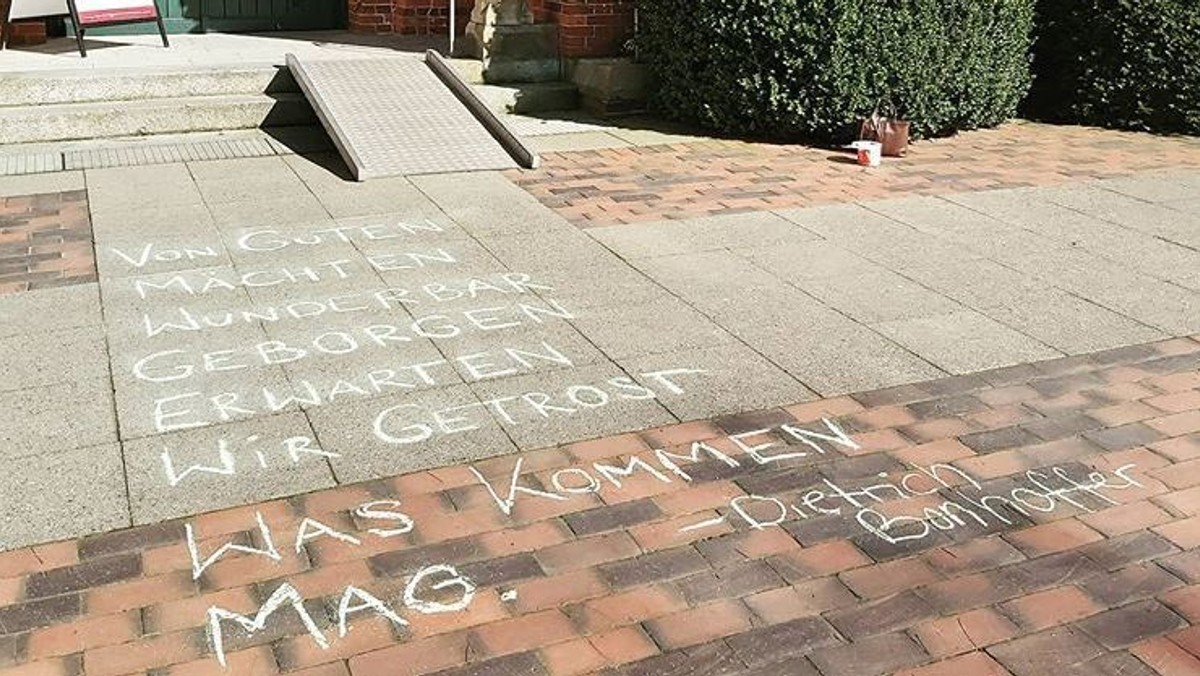 VON GUTEN
MÄCHTEN
WUNDERBAR
GEBORGEN
ERWARTEN
WiR GETROST
WAS KOMMEN
MAG.
- Dietrich
Bonhoffer